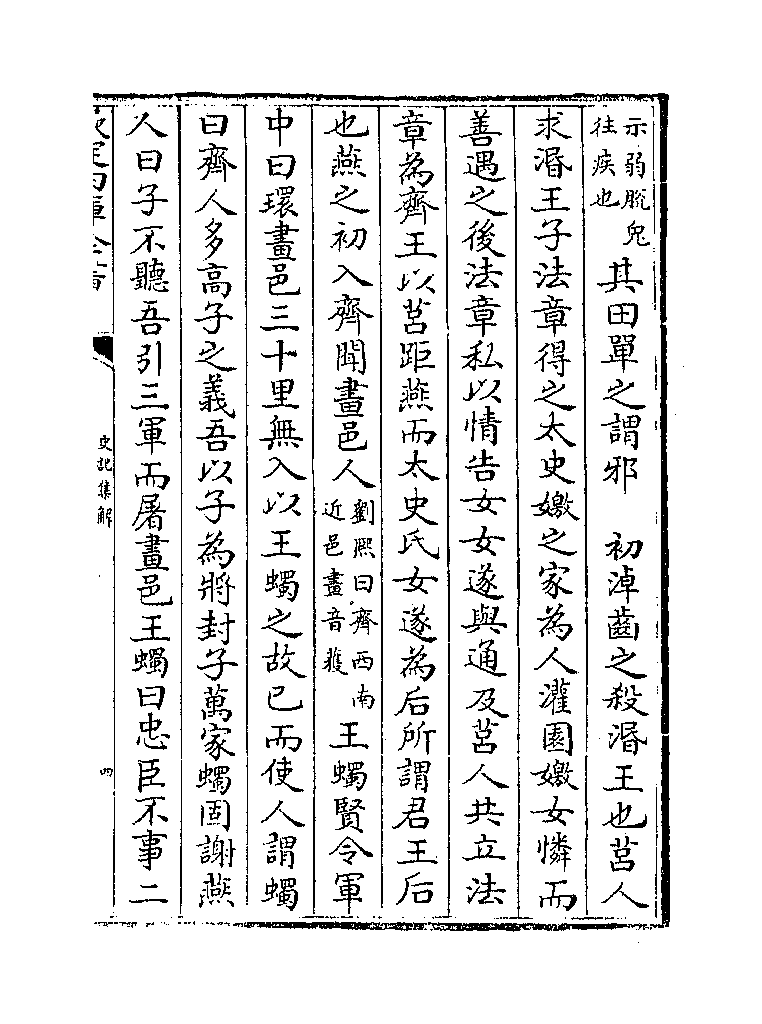 示弱脫兔
往疾也
其田單之謂邪　初淖齒之殺湣王也莒人
求湣王子法章得之太史嬓之家為人灌園嬓女憐而
善遇之後法章私以情告女女遂與通及莒人共立法
章為齊王以莒距燕而太史氏女遂為后所謂君王后
也燕之初入齊聞畫邑人
劉熙曰齊西南
近邑畫音獲
王蠋賢令軍
中曰環畫邑三十里無入以王蠋之故已而使人謂蠋
曰齊人多高子之義吾以子為將封子萬家蠋固謝燕
人曰子不聽吾引三軍而屠畫邑王蠋曰忠臣不事二
欽定四庫全書
史記集解
四